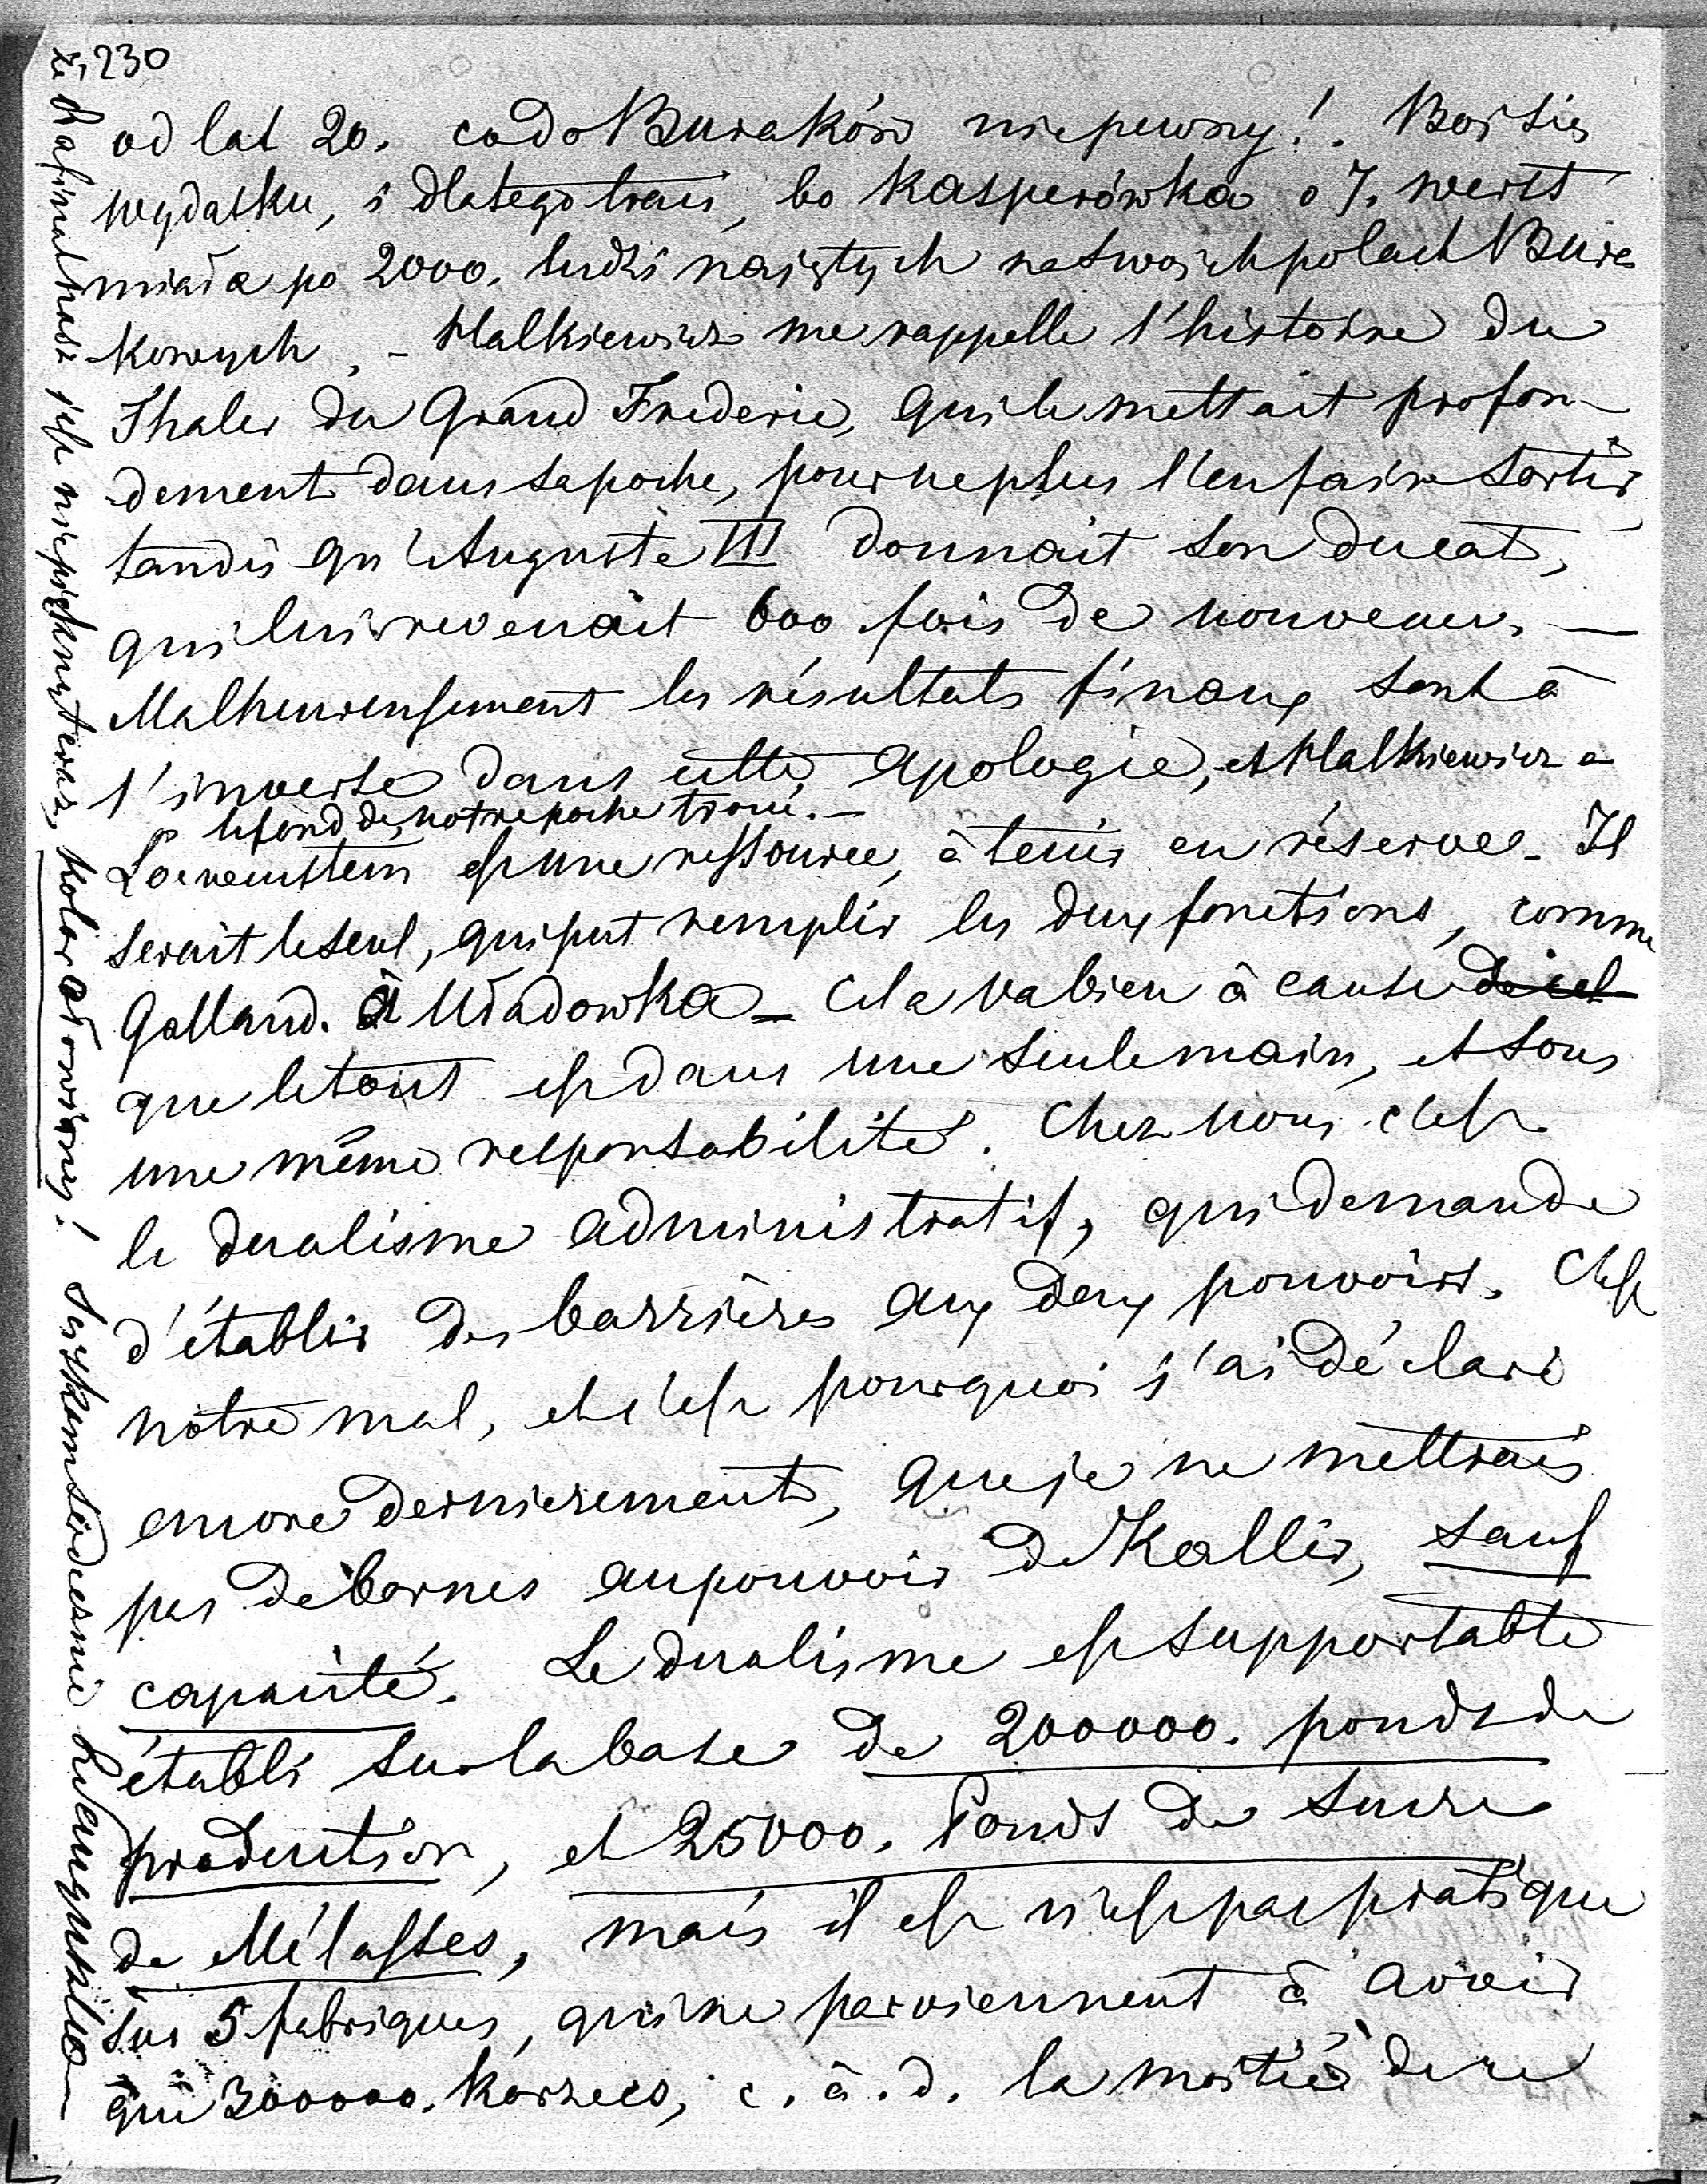 230
od lat 20. co do Buraków niepewny! Boi się
wydatku, i dlatego traci, bo Kasperówka o 7. werst
miała po 2000. ludzi najętych na swoich polach Bura
kowych. - Malkiewicz me rappelle l'histoire du
Thaler du Grand Frederic, qui le mettait profon-
dement dans sa poche, pour ne plus l'en faire sortir,
tandis qu'Auguste III donnait son ducat,
qui lui revenait 600 fois de nouveau. -
Malheureusement les résultats finaux sont à
l'inverse dans cette apologie, et Malkiewicz a
le fond de notre poche troué. -
Loewenstein est une ressource, à tenir en réserve. Il
serait le seul, qui put remplir les deux fonctions, comme
Galland. à Uładowka - Cela va bien à cause
que le tout est dans une seule main, et sous
une même responsabilité. Chez nous c'est
le dualisme administratif, qui demande
d'établir des barrières aux deux pouvoirs. C'est
notre mal, et c'est pourquoi j'ai déclaré
encore dernierement, que je ne mettrais
pas de bornes au pouvoir de Keller, sauf
capacité. Le dualisme est supportable
établi sur la base de 200000. pouds de
production, et 25000. Pouds de sucre
de Mélasses, mais il est n'est pas pratique
sur 5 fabriques, qui ne parviennent à avoir
que 300000. Korzecs, c. à. d. la moitié de ce
że Rafinat nasz jest niepiękny teraz, kolor ołowiany! Ściskam serdecznie